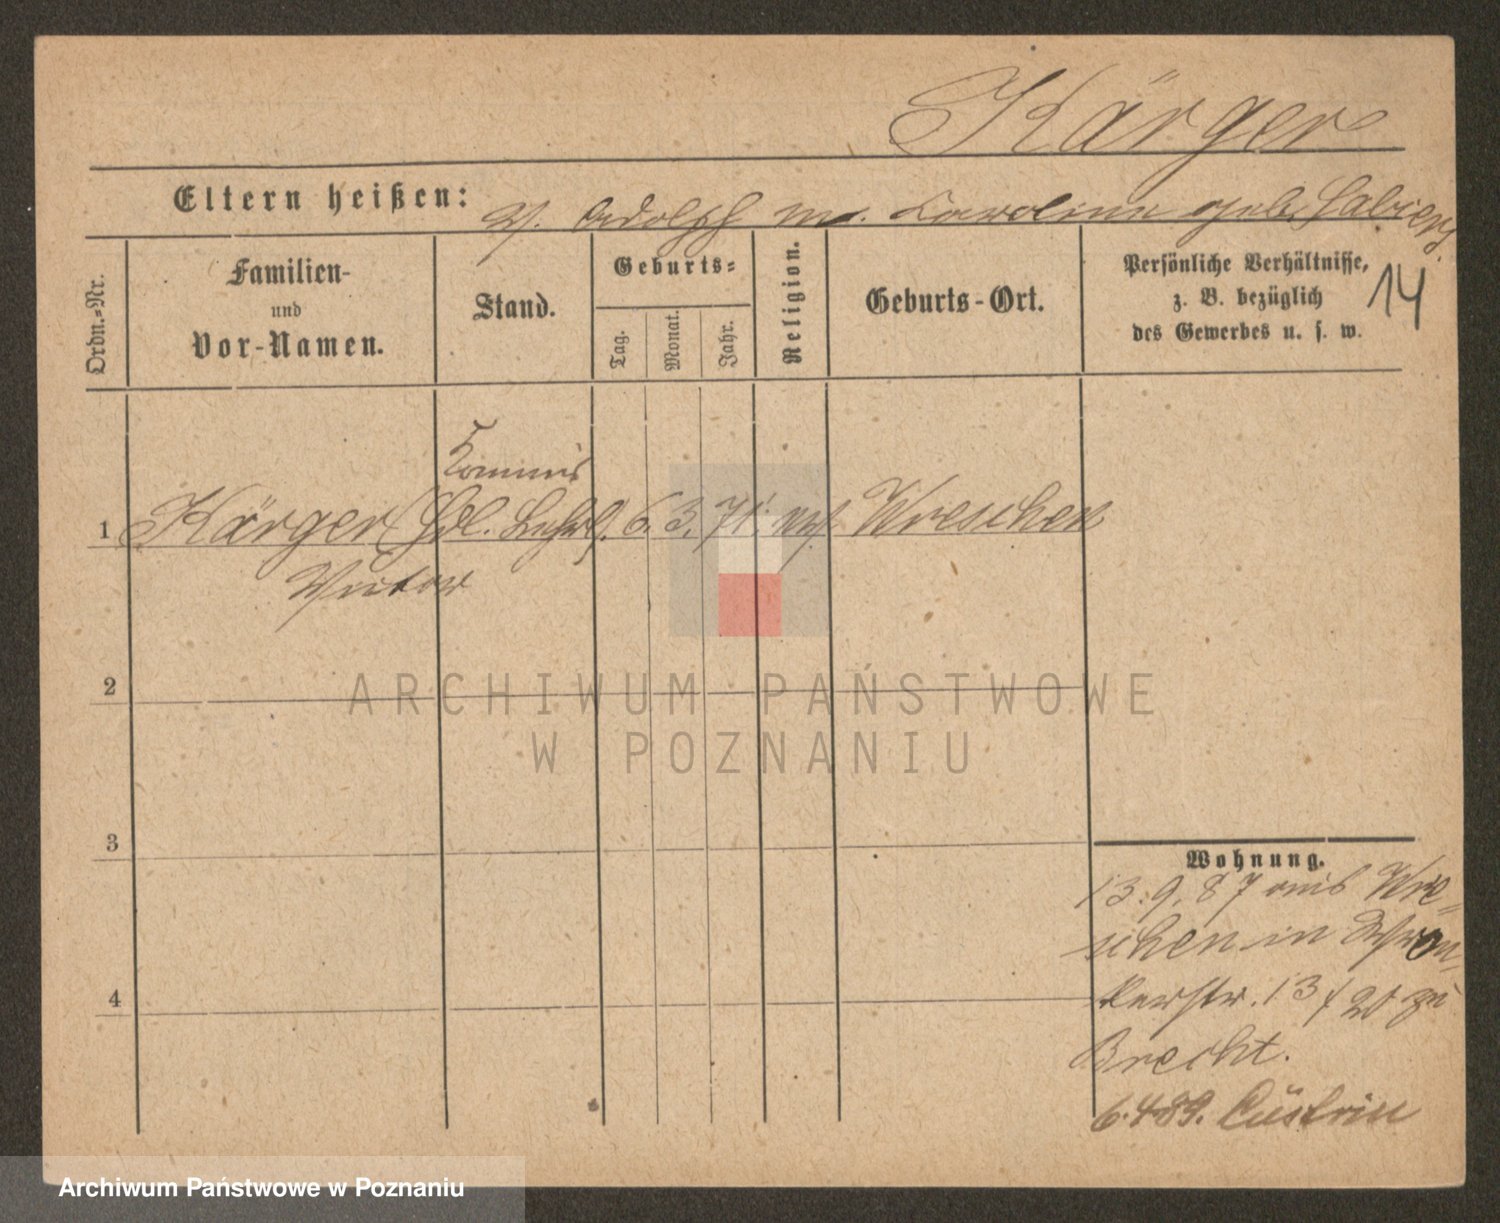 Kärger
Eltern heißen: V. Adolph M. Caroline geb.
Ordn.-Nr.
Familien-
und
Vor-Namen.
Stand.
Geburts-
Tag.
Monat.
Jahr.
Religion.
Geburts-Ort.
Persönliche Verhältnisse,
z. B. bezüglich
des Gewerbes u. s. w.
14
Kommis
1 Kärger Hdl. Lehrl. 6. 3. 71. Wreschen
Victor
2
3
4
Wohnung.
13.9.87 aus Wre-
schen in
kerstr. 13 / 20 zu
Brecht.
6.4.89. Cüstrin
ARCHIWUM PAŃSTWOWE
W POZNANIU
Archiwum Państwowe w Poznaniu